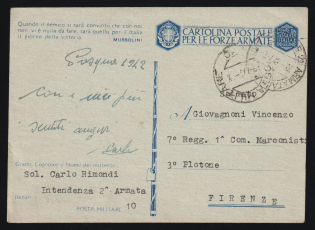 Quando il nemico si sarà convinto che con noi
non vi è nulla da fare, sarà quello per il nemico
il giorno della vittoria.
MUSSOLINI
CARTOLINA POSTALE
PER LE FORZE ARMATE
Pasqua 1942
con i miei più
sentiti auguri
Carlo
Grado, Cognome e Nome del mittente
Sol. Carlo Rimondi
Intendenza 2ª Armata
POSTA MILITARE 10
A Giovagnoni Vincenzo
7° Regg. 1° Com. Marconisti
3° Plotone
FIRENZE